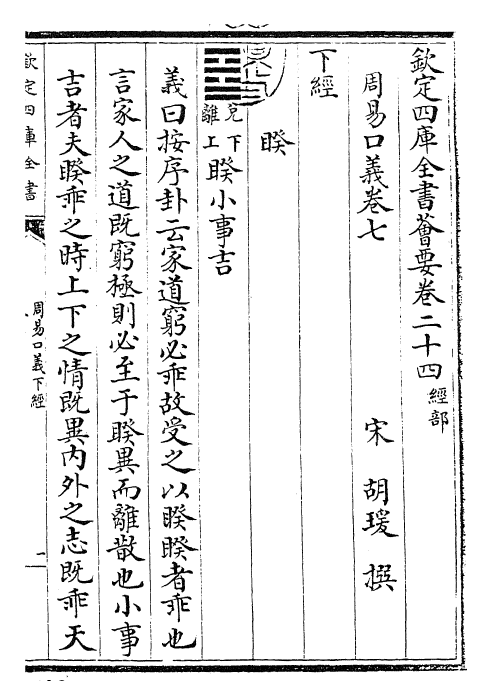 欽定四庫全書薈要卷二十四 經部
周易口義卷七 宋 胡瑗 撰
下經
睽
兌下
離上
睽小事吉
義曰按序卦云家道窮必乖故受之以睽睽者乖也
言家人之道既窮極則必至于睽異而離散也小事
吉者夫睽乖之時上下之情既異内外之志既乖天
欽定四庫全書
周易口義下經
一